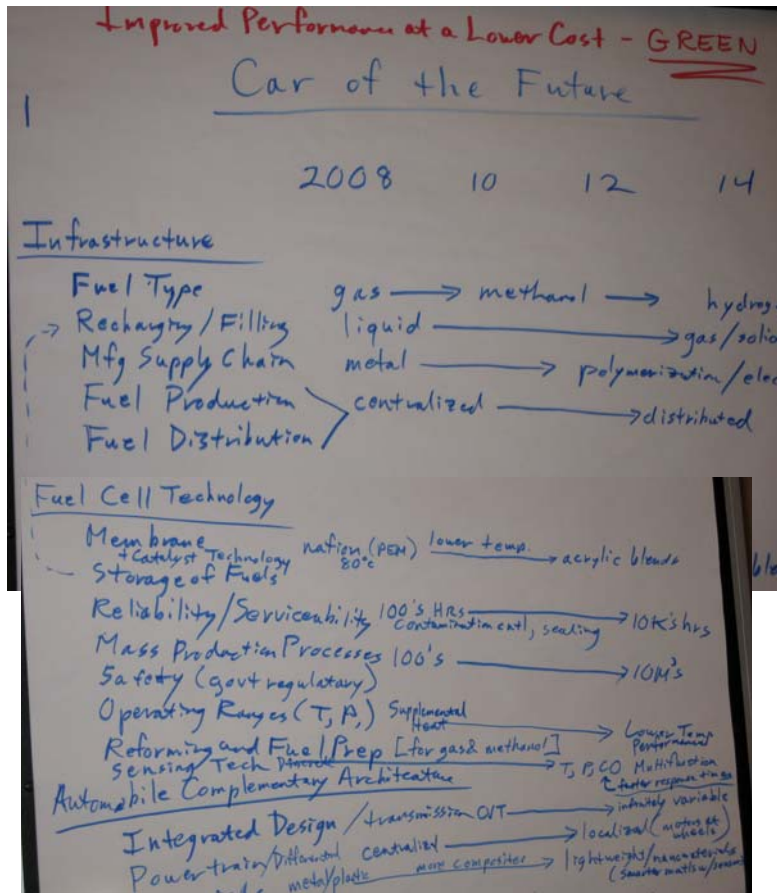 Improved Performance at a Lower Cost - GREEN
Car of the Future
1
2008 10 12 14
Infrastructure
Fuel Type gas → methanol → hydrog
Recharging/Filling liquid → gas/solid
Mfg Supply Chain metal → polymerization/elec
Fuel Production centralized → distributed
Fuel Distribution
Fuel Cell Technology
Membrane nafion (PEM) lower temp. → acrylic blends
+ Catalyst Technology 80°c
Storage of Fuels
Reliability/Serviceability 100's HRs → 10K's hrs
contamination, sealing
Mass Production Processes 100's → 10M's
Safety (govt regulatory)
Operating Ranges (T, P,) Supplemental heat → Lower Temp Performance
Reforming and Fuel Prep [for gas & methanol]
Sensing Tech Discrete → T, P, CO Multifunction
faster response times
Automobile Complementary Architecture
Integrated Design/transmission CVT → infinitely variable
Powertrain/Differential centralized → localized (motors at wheels)
metal/plastic more composites → lightweight/nanomaterials
(smarter matls w/sensors)